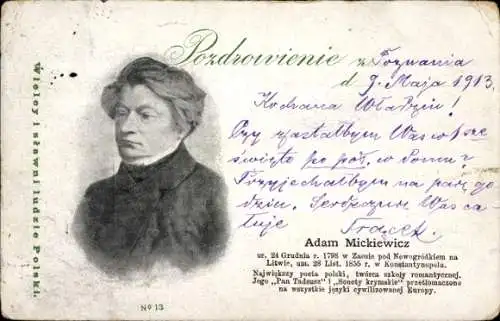 Wielcy i sławni ludzie Polski.
Pozdrowienie z Poznania
d. 9. Maja 1913.
Kochana Władziu!
Czy zastałbym Was w te
święta po poł. w domu?
Przyjechałbym na parę go
dzin. Serdecznie Was ca-
łuje
Adam Mickiewicz
ur. 24 Grudnia r. 1798 w Zaosiu pod Nowogródkiem na
Litwie, um. 28 List. 1855 r. w Konstantynopolu.
Największy poeta polski, twórca szkoły romantycznej.
Jego „Pan Tadeusz" i „Sonety krymskie" przetłomaczono
na wszystkie języki cywilizowanej Europy.
No 13